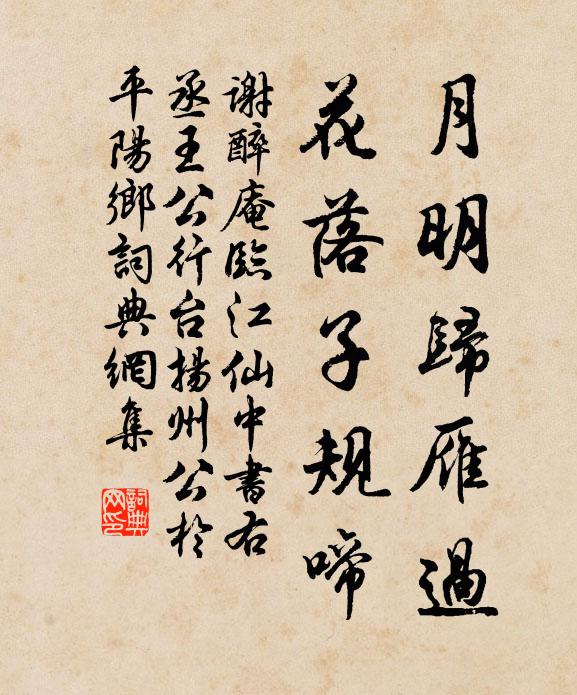 月明歸雁過
花落子規啼
謝醉庵臨江仙中書右
丞王公行台揚州公於
平陽鄉詞典網集
詞典網印